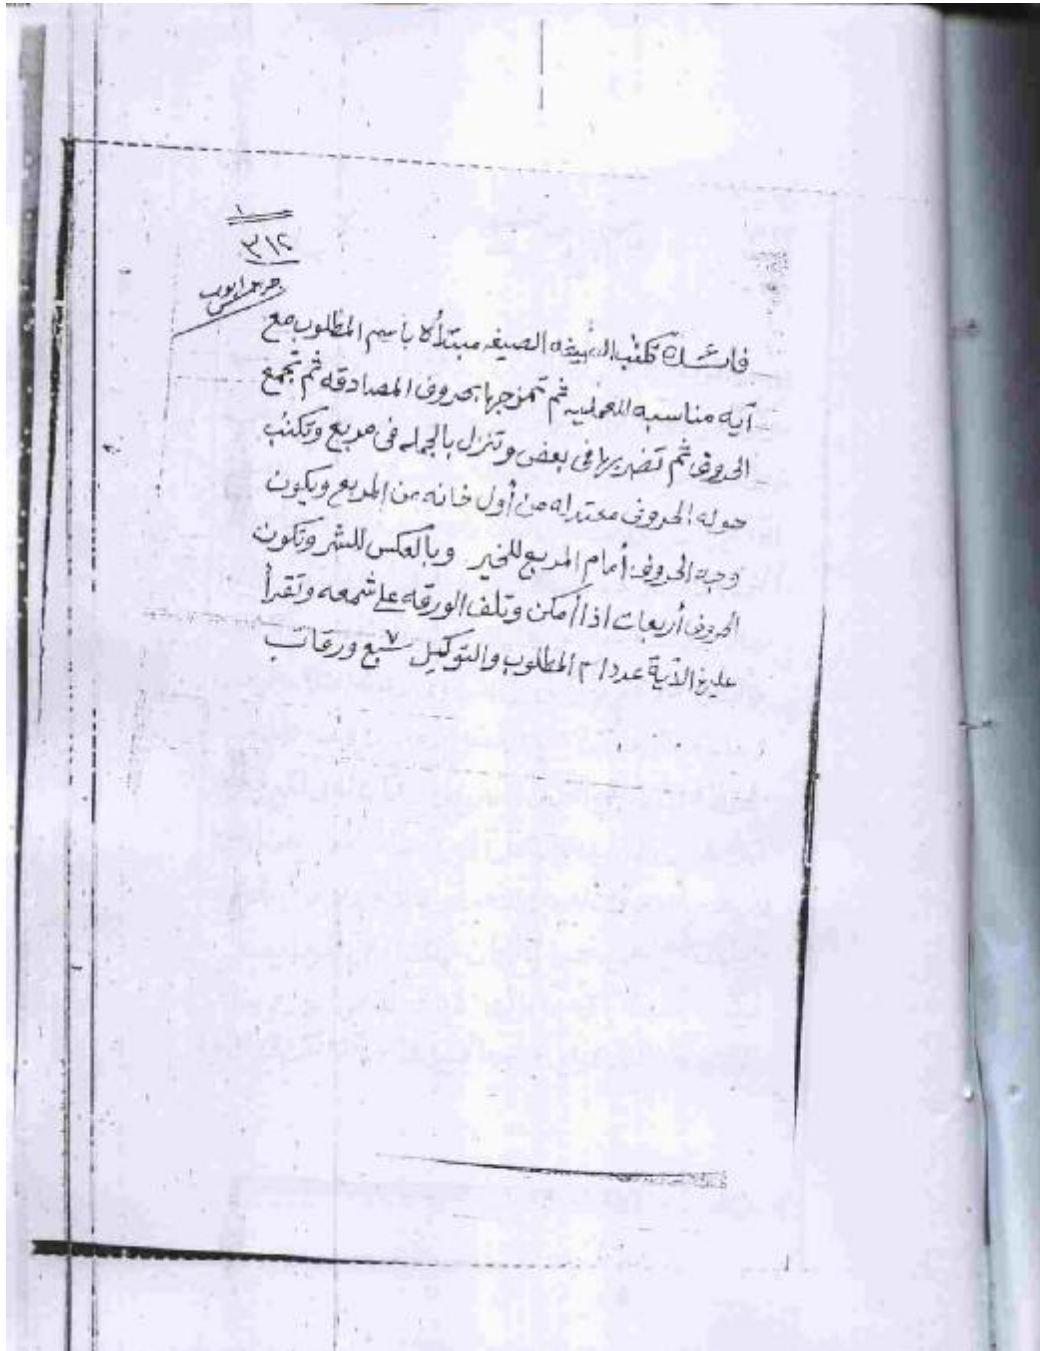 ١
٣١٢
فائدة تكتب الصيغه مبتدأه باسم المطلوب مع
آيه مناسبه للعمليه ثم تمزجها بحروف المصادقه ثم تجمع
الحروف ثم تضربها فى بعض وتنزل بالجمله فى مربع وتكتب
حوله الحروف مبتدأه من أول خانه من المربع ويكون
وجه الحروف أمام المربع للخير وبالعكس للشر وتكون
الحروف أربعات اذا أمكن وتلف الورقه على شمعه وتقرأ
عليها الآية عدد اسم المطلوب والتوكيل ٧ سبع ورقات